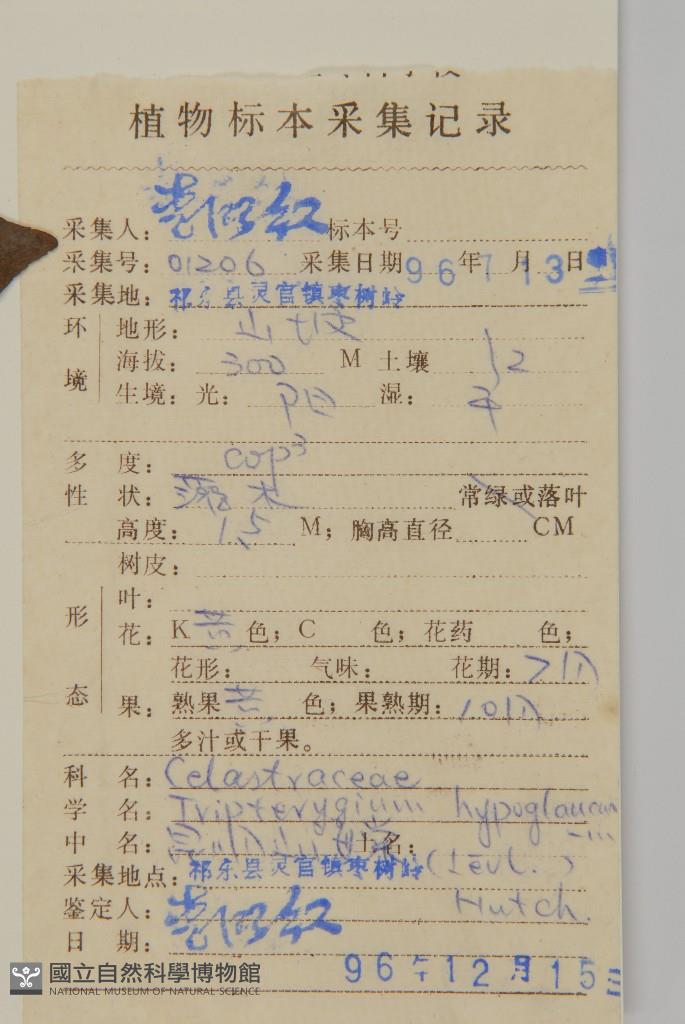 植物标本采集记录
采集人： 标本号
采集号：01206 采集日期 96年7月13日
采集地：祁东县灵官镇枣树岭
环境 地形：山坡
海拔：300 M 土壤
生境：光：阳 湿：干
多度：cop³
性状：灌木 常绿或落叶
高度：1.5 M；胸高直径 CM
树皮：
形态 叶：
花：K 色；C 色；花药 色；
花形： 气味： 花期：7月
果：熟果 色；果熟期：10月
多汁或干果。
科名：Celastraceae
学名：Tripterygium hypoglaucum
中名： 土名：
(Levl.)
采集地点：祁东县灵官镇枣树岭
Hutch.
鉴定人：
日期：96年12月15
國立自然科學博物館
NATIONAL MUSEUM OF NATURAL SCIENCE